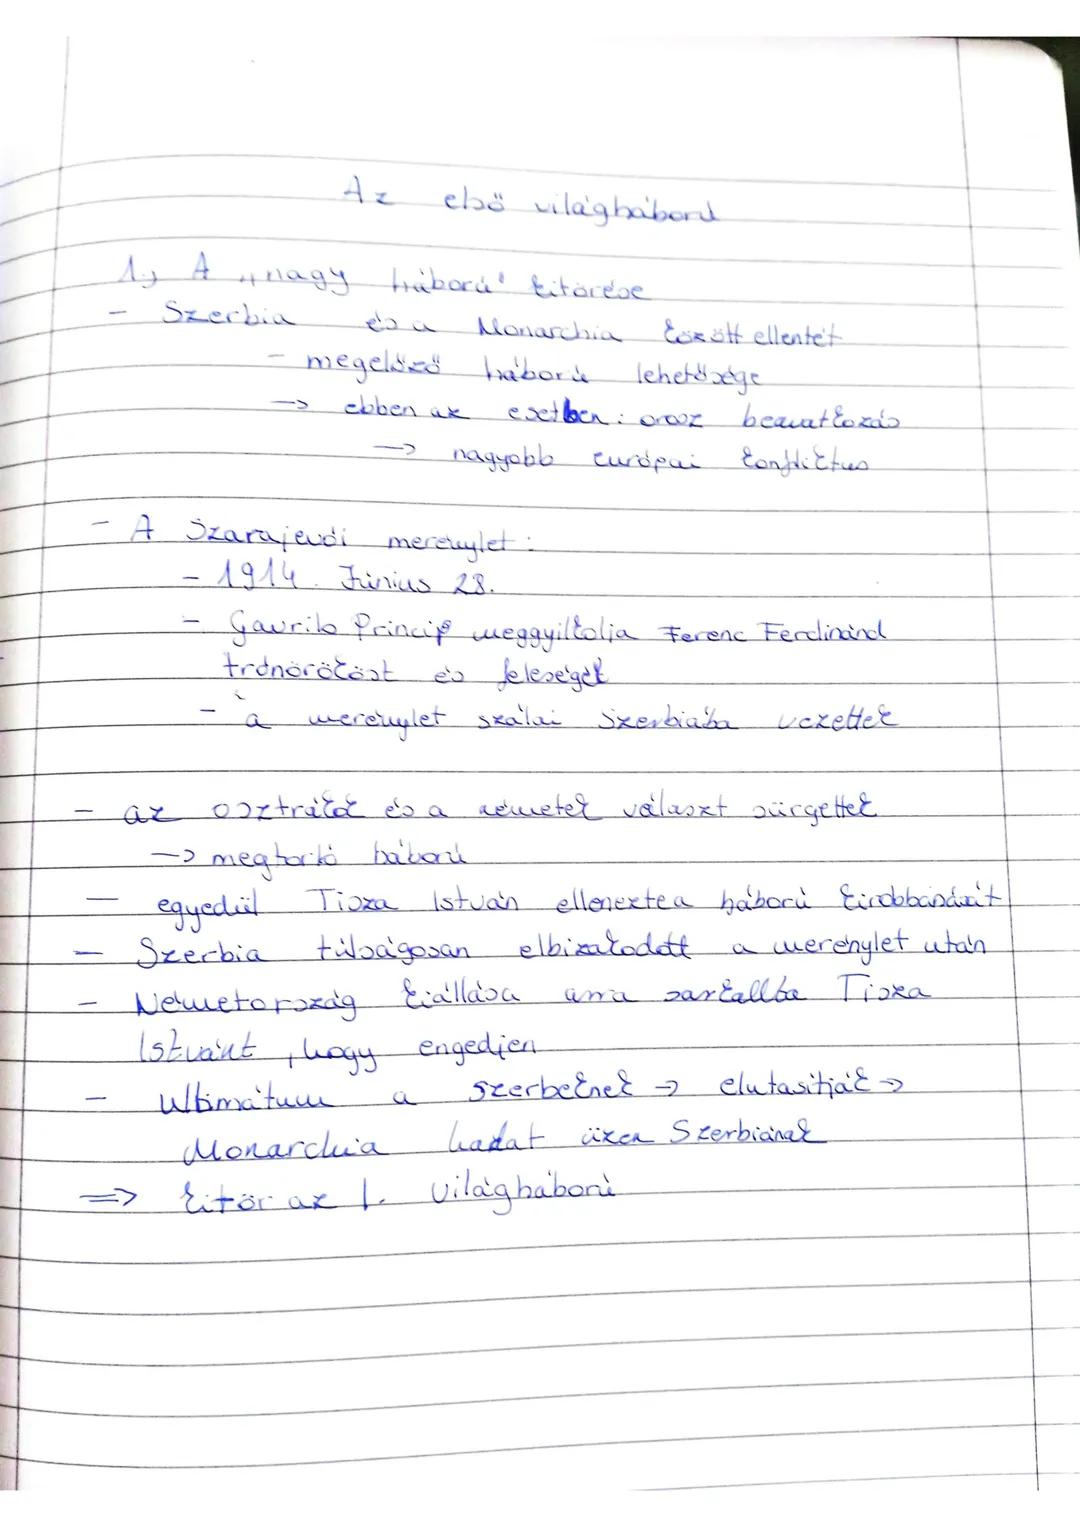 Az első világháború
1., A „nagy háború" kitörése
- Szerbia és a Monarchia között ellentét
- megelőző háború lehetősége
-> ebben az esetben: orosz beavatkozás
-> nagyobb európai konfliktus
- A Szarajevói merénylet:
- 1914. Június 28.
- Gavrilo Princip meggyilkolja Ferenc Ferdinánd
trónörököst és feleségét
- a merénylet szálai Szerbiába vezettek
- az osztrákok és a németek választ sürgettek
-> megtorló háború
- egyedül Tisza István ellenezte a háború kirobbanását
- Szerbia túlságosan elbizakodott a merénylet után
- Németország kiállása arra sarkallta Tisza
Istvánt, hogy engedjen
- ultimátum a szerbeknek -> elutasítják ->
Monarchia hadat üzen Szerbiának
=> kitör az I. világháború